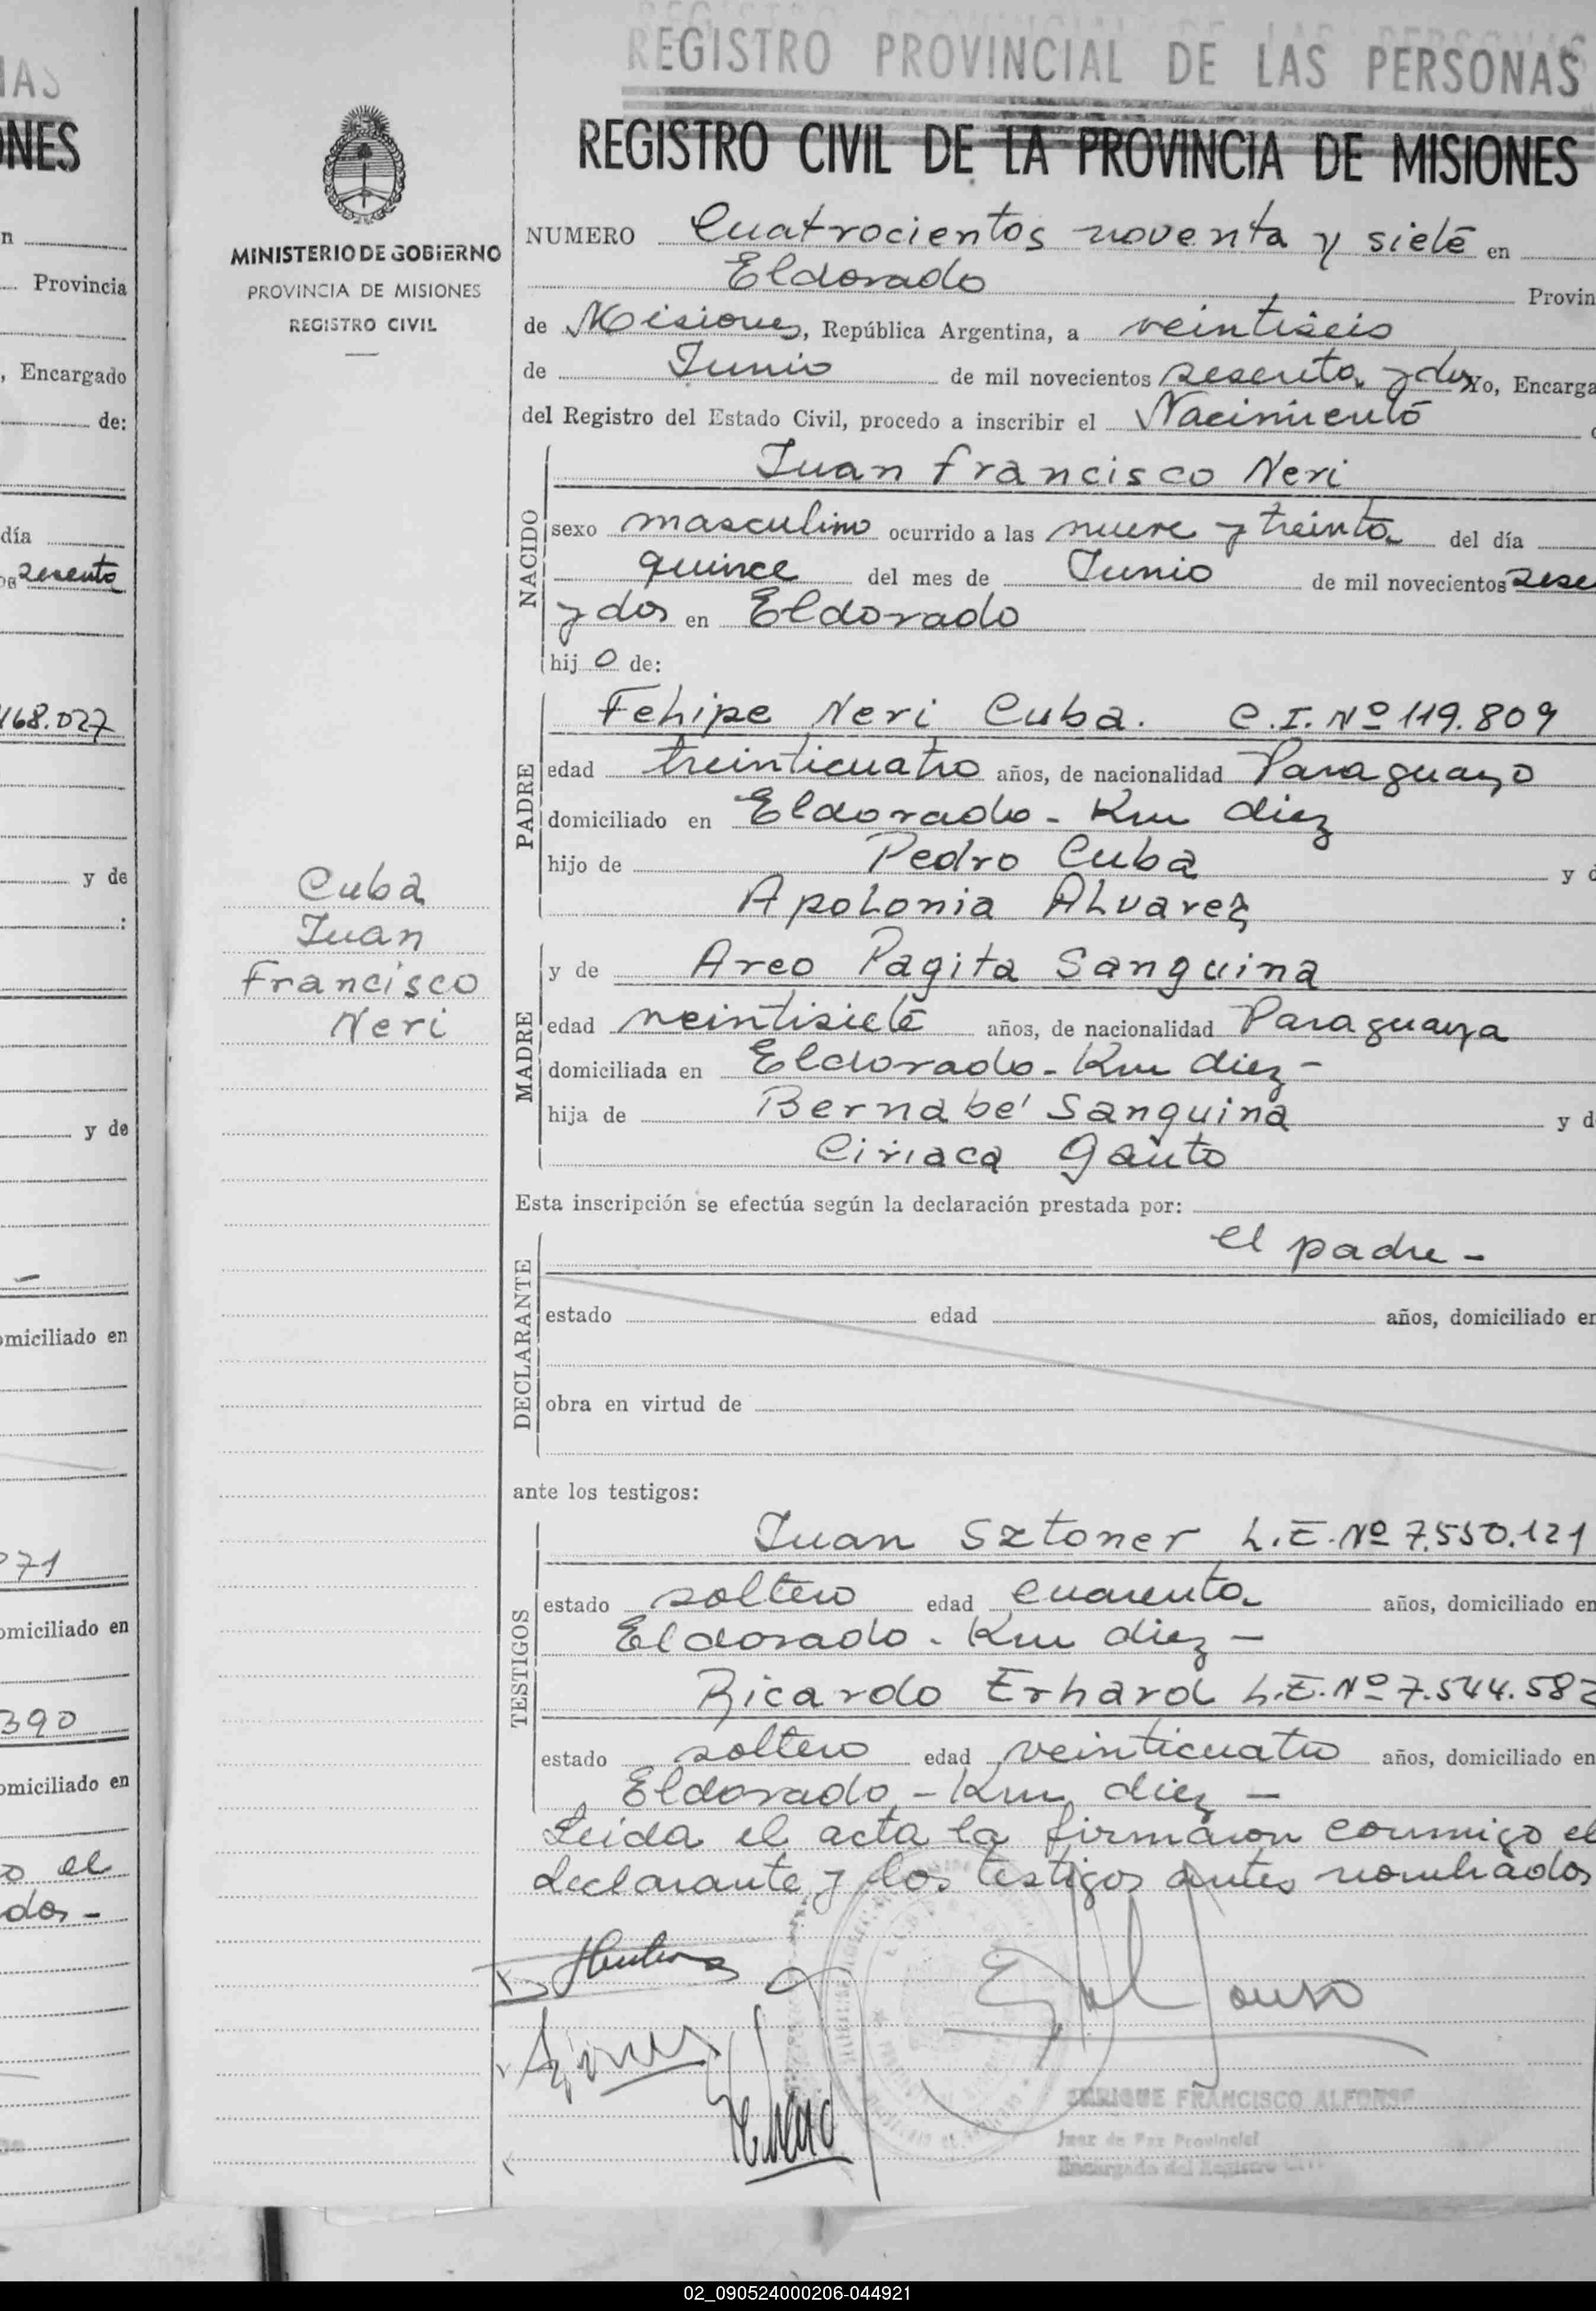 REGISTRO PROVINCIAL DE LAS PERSONAS
REGISTRO CIVIL DE LA PROVINCIA DE MISIONES
MINISTERIO DE GOBIERNO
PROVINCIA DE MISIONES
REGISTRO CIVIL
NUMERO Cuatrocientos noventa y siete en
Eldorado Provin
de Misiones, República Argentina, a veintiseis
de Junio de mil novecientos sesenta y dos Yo, Encarga
del Registro del Estado Civil, procedo a inscribir el Nacimiento
NACIDO
Juan Francisco Neri
sexo masculino ocurrido a las nueve y treinta del día
quince del mes de Junio de mil novecientos sese
y dos en Eldorado
hij o de:
PADRE
Felipe Neri Cuba. C.I. Nº 119.809
edad treinticuatro años, de nacionalidad Paraguayo
domiciliado en Eldorado - Km diez
hijo de Pedro Cuba y d
Apolonia Alvarez
MADRE
y de Areo Pagita Sanguina
edad veintisiete años, de nacionalidad Paraguaya
domiciliada en Eldorado - Km diez -
hija de Bernabé Sanguina y d
Ciriaca Gauto
Cuba
Juan
Francisco
Neri
Esta inscripción se efectúa según la declaración prestada por:
DECLARANTE
el padre -
estado edad años, domiciliado en
obra en virtud de
ante los testigos:
TESTIGOS
Juan Sztoner L.E. Nº 7.550.121
estado soltero edad cuarenta años, domiciliado en
Eldorado - Km diez -
Ricardo Erhard L.E. Nº 7.544.582
estado soltero edad veinticuatro años, domiciliado en
Eldorado - Km diez -
Leida el acta la firmaron conmigo el
declarante y los testigos antes nombrados
ENRIQUE FRANCISCO ALFONSO
Juez de Paz Provincial
Encargado del Registro Civil
IAS
ONES
n
Provincia
, Encargado
de:
día
os sesenta
168.027
y de
:
y de
omiciliado en
271
omiciliado en
390
omiciliado en
o el
dos -
02_090524000206-044921